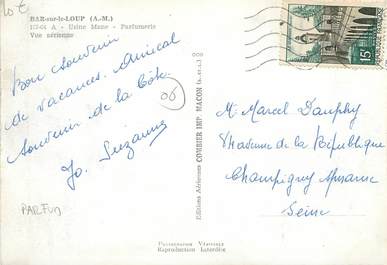 10 €
BAR-sur-le-LOUP (A.-M.)
Usine Mane - Parfumerie
Vue aérienne
Bon Souvenir
de Vacances. Amical
Souvenir de la Côte.
Jo. Suzanne
06
PARFUM
Editions Aériennes COMBIER IMP. MACON (S.-et-L.)
15F
M. Marcel Dauphy
avenue de la République
Champigny s/Marne
Seine
Reproduction Interdite